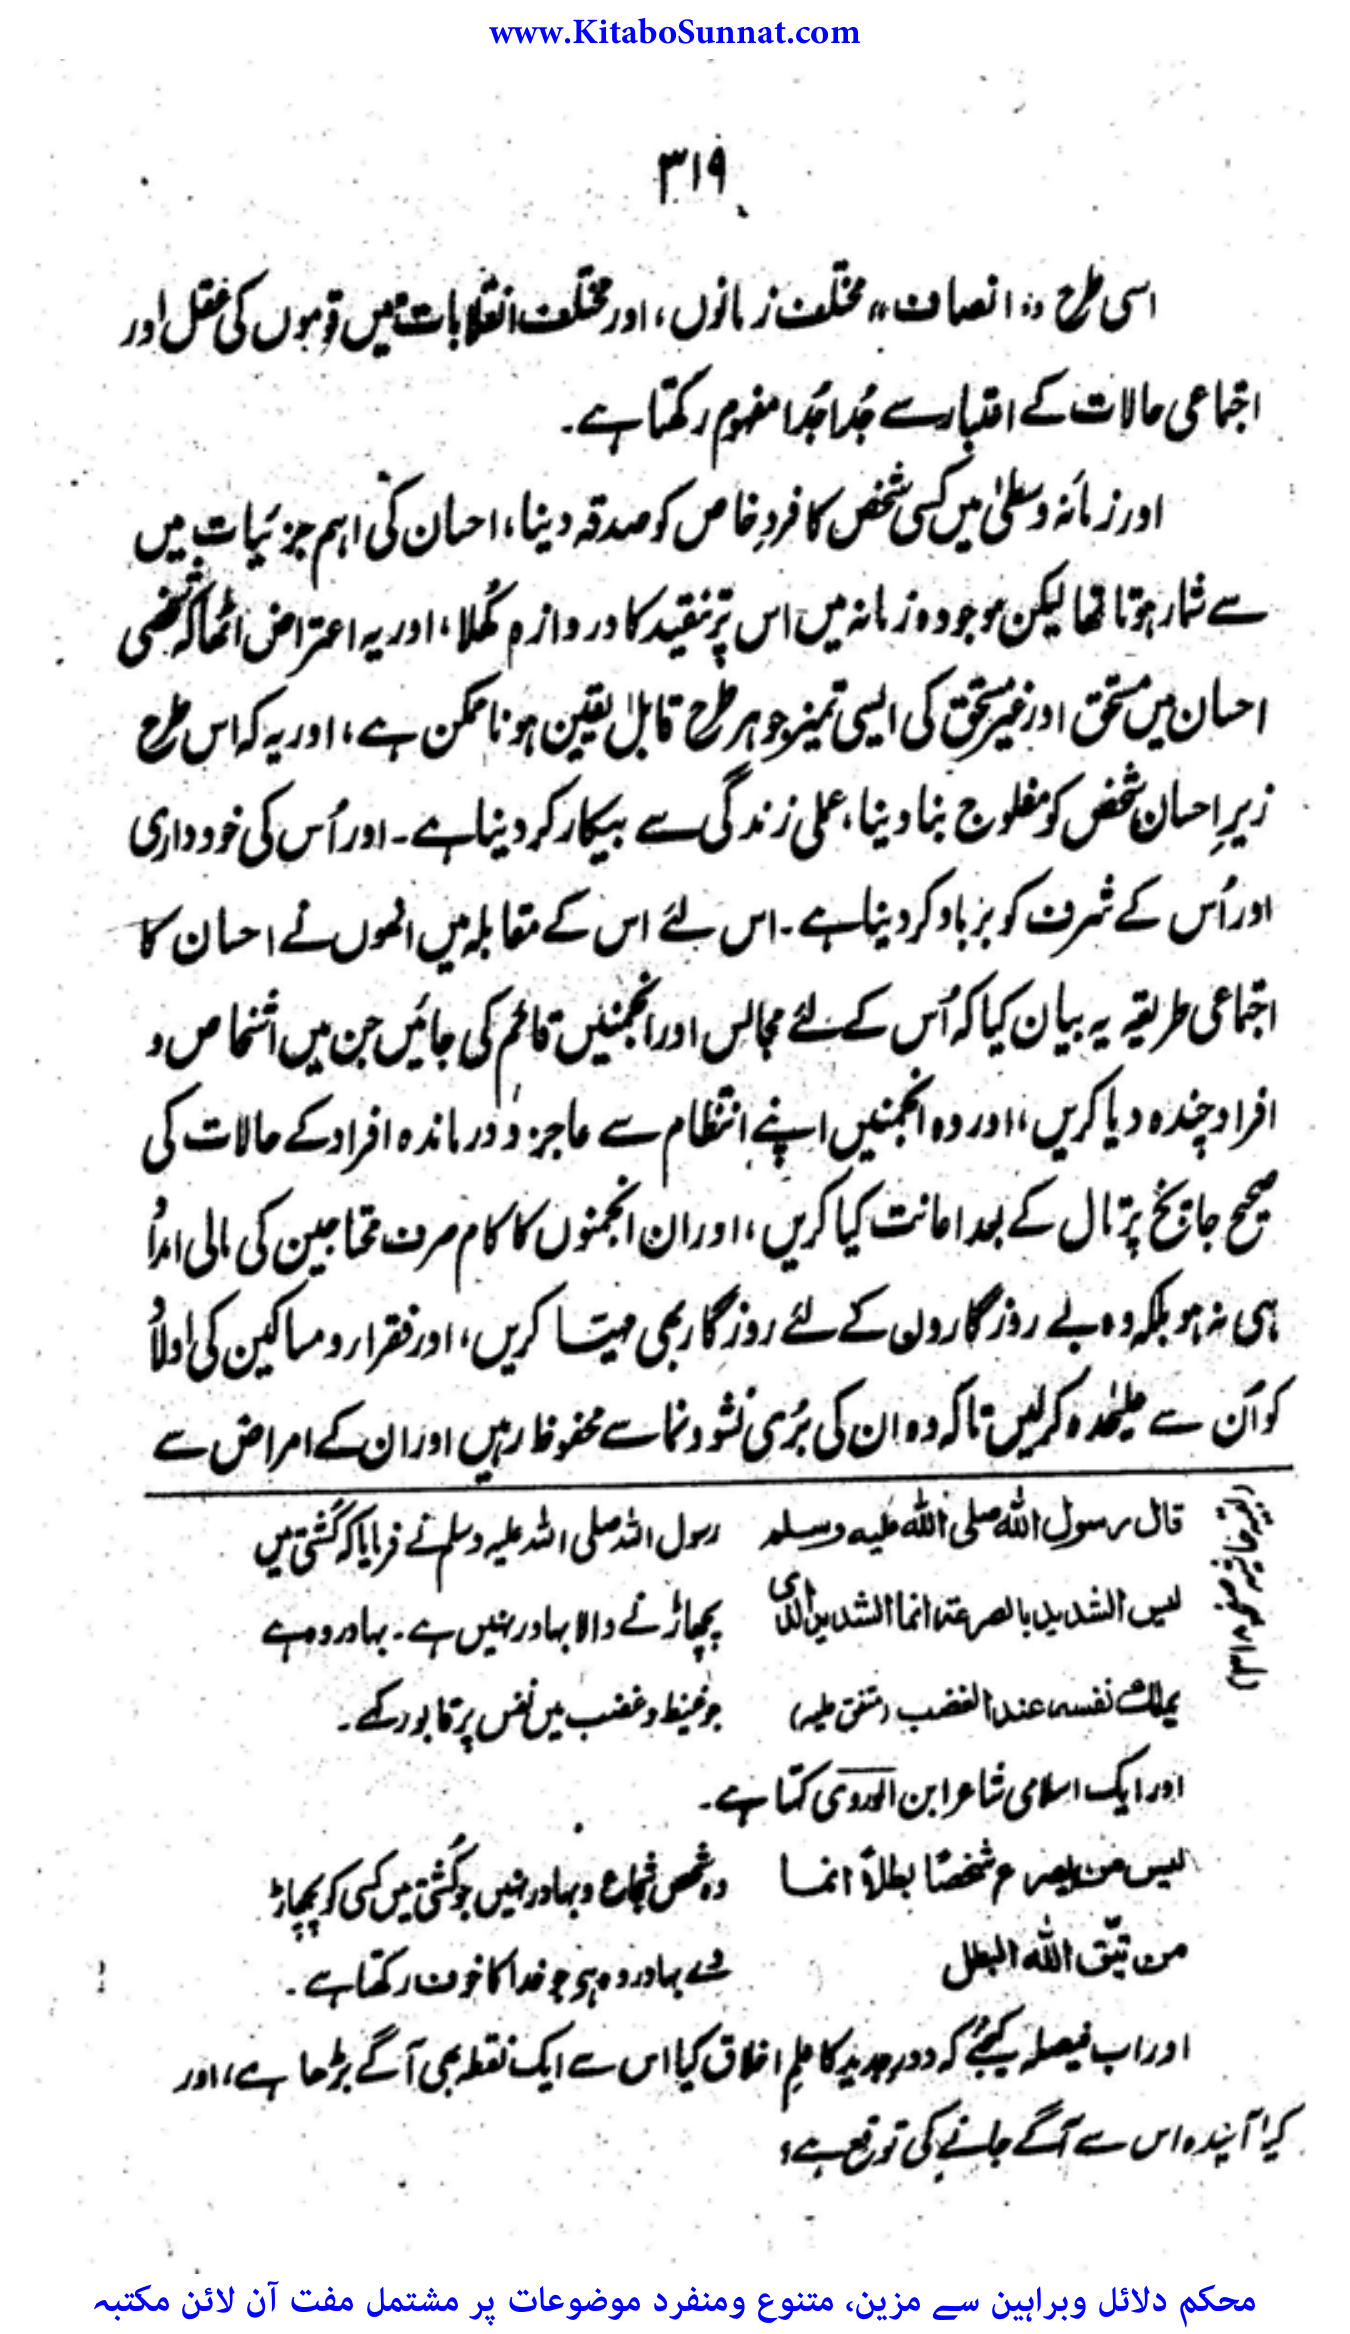 www.KitaboSunnat.com
۳۱۹
اسی طرح "انصاف" مختلف زمانوں، اور مختلف انقلابات میں قوموں کی عقل اور
اجتماعی حالات کے اعتبار سے جُدا جُدا مفہوم رکھتا ہے۔
اور زمانۂ وسطیٰ میں کسی شخص کا فردِ خاص کو صدقہ دینا، احسان کی اہم جزئیات میں
سے شمار ہوتا تھا لیکن موجودہ زمانہ میں اس پر تنقید کا دروازہ کُھلا، اور یہ اعتراض اُٹھا کہ شخصی
احسان میں مستحق اور غیر مستحق کی ایسی تمیز جو ہر طرح قابل یقین ہو ناممکن ہے، اور یہ کہ اس طرح
زیرِ احسان شخص کو مفلوج بنا دینا، عملی زندگی سے بیکار کر دینا ہے۔ اور اُس کی خودداری
اور اُس کے شرف کو برباد کر دینا ہے۔ اس لئے اس کے مقابلہ میں انھوں نے احسان کا
اجتماعی طریقہ یہ بیان کیا کہ اُس کے لئے مجالس اور انجمنیں قائم کی جائیں جن میں اشخاص و
افراد چندہ دیا کریں، اور وہ انجمنیں اپنے انتظام سے عاجز و درماندہ افراد کے حالات کی
صحیح جانچ پڑتال کے بعد اعانت کیا کریں، اور ان انجمنوں کا کام صرف محتاجین کی مالی امداد
ہی نہ ہو بلکہ وہ بے روزگاروں کے لئے روزگار بھی مہیّا کریں، اور فقراء و مساکین کی اولاد
کو اُن سے علیٰحدہ کرلیں تاکہ وہ ان کی بُری نشوونما سے محفوظ رہیں اور ان کے امراض سے
(بقیہ حاشیہ صفحہ ۳۱۸)
قال رسول اللہ صلی اللہ علیہ وسلم رسول اللہ صلی اللہ علیہ وسلم نے فرمایا کہ کُشتی میں
لیس الشدید بالصرعۃ انما الشدید الذی پچھاڑنے والا بہادر نہیں ہے۔ بہادر وہ ہے
یملک نفسہ عند الغضب (متفق علیہ) جو غیظ و غضب میں نفس پر قابو رکھے۔
اور ایک اسلامی شاعر ابن الوردی کہتا ہے۔
لیس من یصرع شخصًا بطلاً انما وہ شخص شجاع و بہادر نہیں جو کُشتی میں کسی کو پچھاڑ
من یتّق اللہ البطل دے بہادر وہ ہی جو خدا کا خوف رکھتا ہے۔
اور اب فیصلہ کیجئے کہ دورِ جدید کا علمِ اخلاق کیا اس سے ایک نقطہ بھی آگے بڑھا ہے، اور
کیا آیندہ اس سے آگے جانے کی توقع ہے؟
محکم دلائل وبراہین سے مزین، متنوع ومنفرد موضوعات پر مشتمل مفت آن لائن مکتبہ